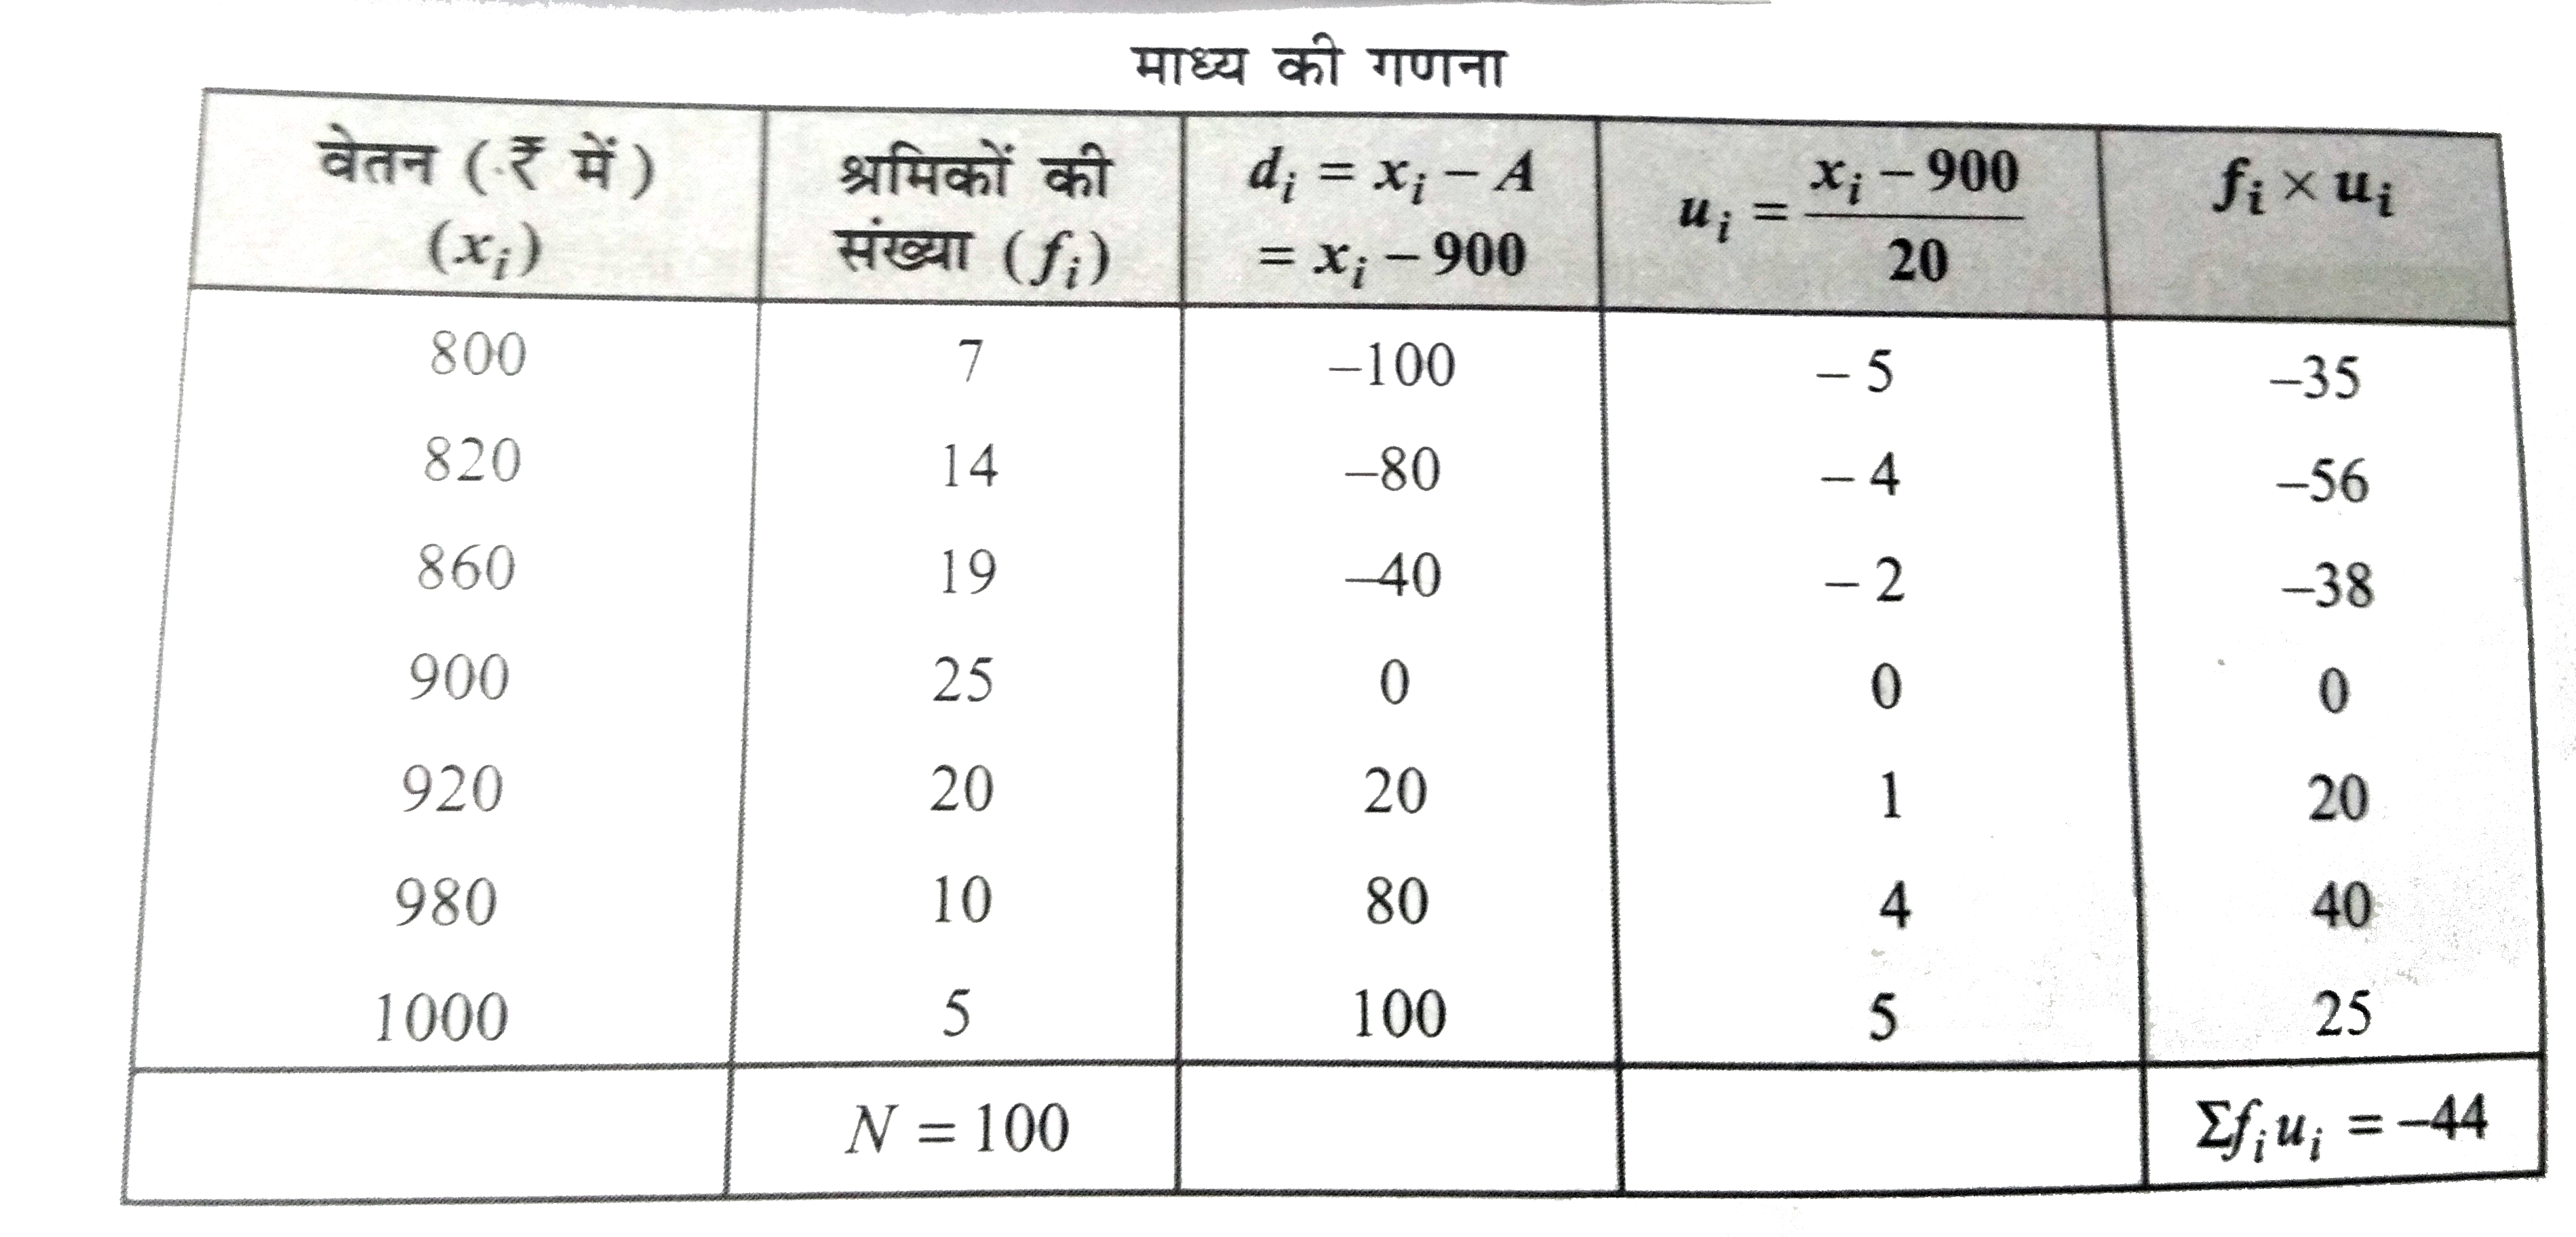 माध्य की गणना
वेतन (₹ में) (xᵢ) | श्रमिकों की संख्या (fᵢ) | dᵢ = xᵢ – A = xᵢ – 900 | uᵢ = (xᵢ – 900)/20 | fᵢ × uᵢ
800 | 7 | –100 | – 5 | –35
820 | 14 | –80 | – 4 | –56
860 | 19 | –40 | – 2 | –38
900 | 25 | 0 | 0 | 0
920 | 20 | 20 | 1 | 20
980 | 10 | 80 | 4 | 40
1000 | 5 | 100 | 5 | 25
N = 100 | Σfᵢuᵢ = –44